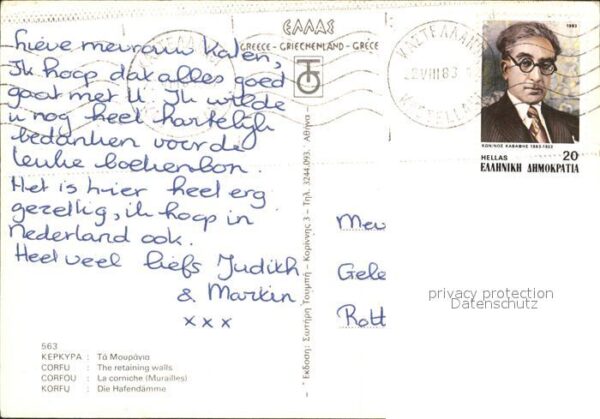 Lieve mevrouw Kalen,
Ik hoop dat alles goed
gaat met U. Ik wilde
u nog heel hartelijk
bedanken voor de
leuke boekenbon.
Het is hier heel erg
gezellig, ik hoop in
Nederland ook.
Heel veel liefs Judith
& Martin
xxx
563
ΚΕΡΚΥΡΑ : Τά Μουράγια
CORFU : The retaining walls
CORFOU : La corniche (Murailles)
KORFU : Die Hafendämme
ΕΛΛΑΣ
GREECE - GRIECHENLAND - GRÈCE
Έκδοση: Σωτήρη Τουμπή - Κορίννης 3 - Τηλ. 3244.093, Άθήνα
ΚΑΣΤΕΛΛΑΝΟΙ
22 VIII 83
1983
ΚΩΝ/ΝΟΣ ΚΑΒΑΦΗΣ 1863-1933
HELLAS 20
ΕΛΛΗΝΙΚΗ ΔΗΜΟΚΡΑΤΙΑ
Mev
Gele
Rott
privacy protection
Datenschutz